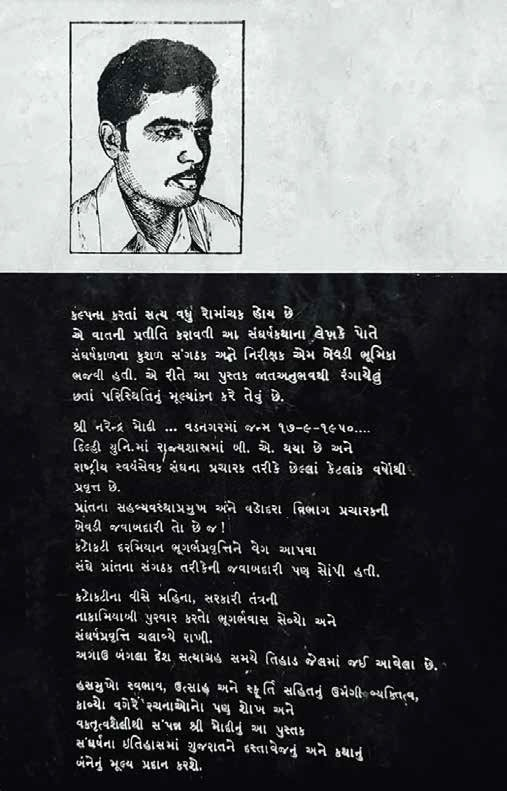 કલ્પના કરતાં સત્ય વધુ રોમાંચક હોય છે
એ વાતની પ્રતીતિ કરાવતી આ સંઘર્ષકથાના લેખકે પોતે
સંઘર્ષકાળના કુશળ સંગઠક અને નિરીક્ષક એમ બેવડી ભૂમિકા
ભજવી હતી. એ રીતે આ પુસ્તક જાતઅનુભવથી રંગાયેલું
છતાં પરિસ્થિતિનું મૂલ્યાંકન કરે તેવું છે.
શ્રી નરેન્દ્ર મોદી ... વડનગરમાં જન્મ ૧૭-૯-૧૯૫૦....
દિલ્હી યુનિ.માં રાજ્યશાસ્ત્રમાં બી. એ. થયા છે અને
રાષ્ટ્રીય સ્વયંસેવક સંઘના પ્રચારક તરીકે છેલ્લાં કેટલાંક વર્ષોથી
પ્રવૃત્ત છે.
પ્રાંતના સહવ્યવસ્થાપ્રમુખ અને વડોદરા વિભાગ પ્રચારકની
બેવડી જવાબદારી તો છે જ !
કટોકટી દરમિયાન ભૂગર્ભપ્રવૃત્તિને વેગ આપવા
સંઘે પ્રાંતના સંગઠક તરીકેની જવાબદારી પણ સોંપી હતી.
કટોકટીના વીસે મહિના, સરકારી તંત્રની
નાકામિયાબી પુરવાર કરતો ભૂગર્ભવાસ સેવ્યો અને
સંઘર્ષપ્રવૃત્તિ ચલાવ્યે રાખી.
અગાઉ બંગલા દેશ સત્યાગ્રહ સમયે તિહાડ જેલમાં જઈ આવેલા છે.
હસમુખો સ્વભાવ, ઉત્સાહ અને સ્ફૂર્તિ સહિતનું ઉમંગી વ્યક્તિત્વ,
કાવ્યો વગેરે રચનાઓનો પણ શોખ અને
વકતૃત્વશૈલીથી સંપન્ન શ્રી મોદીનું આ પુસ્તક
સંઘર્ષના ઈતિહાસમાં ગુજરાતને દસ્તાવેજનું અને કથાનું
બંનેનું મૂલ્ય પ્રદાન કરશે.